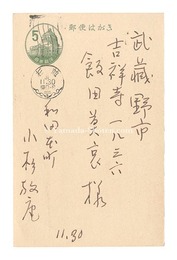 郵便はがき
5
武蔵野市
吉祥寺一九三六
飯田
様
11.30
和田本町
小杉放庵
11.30